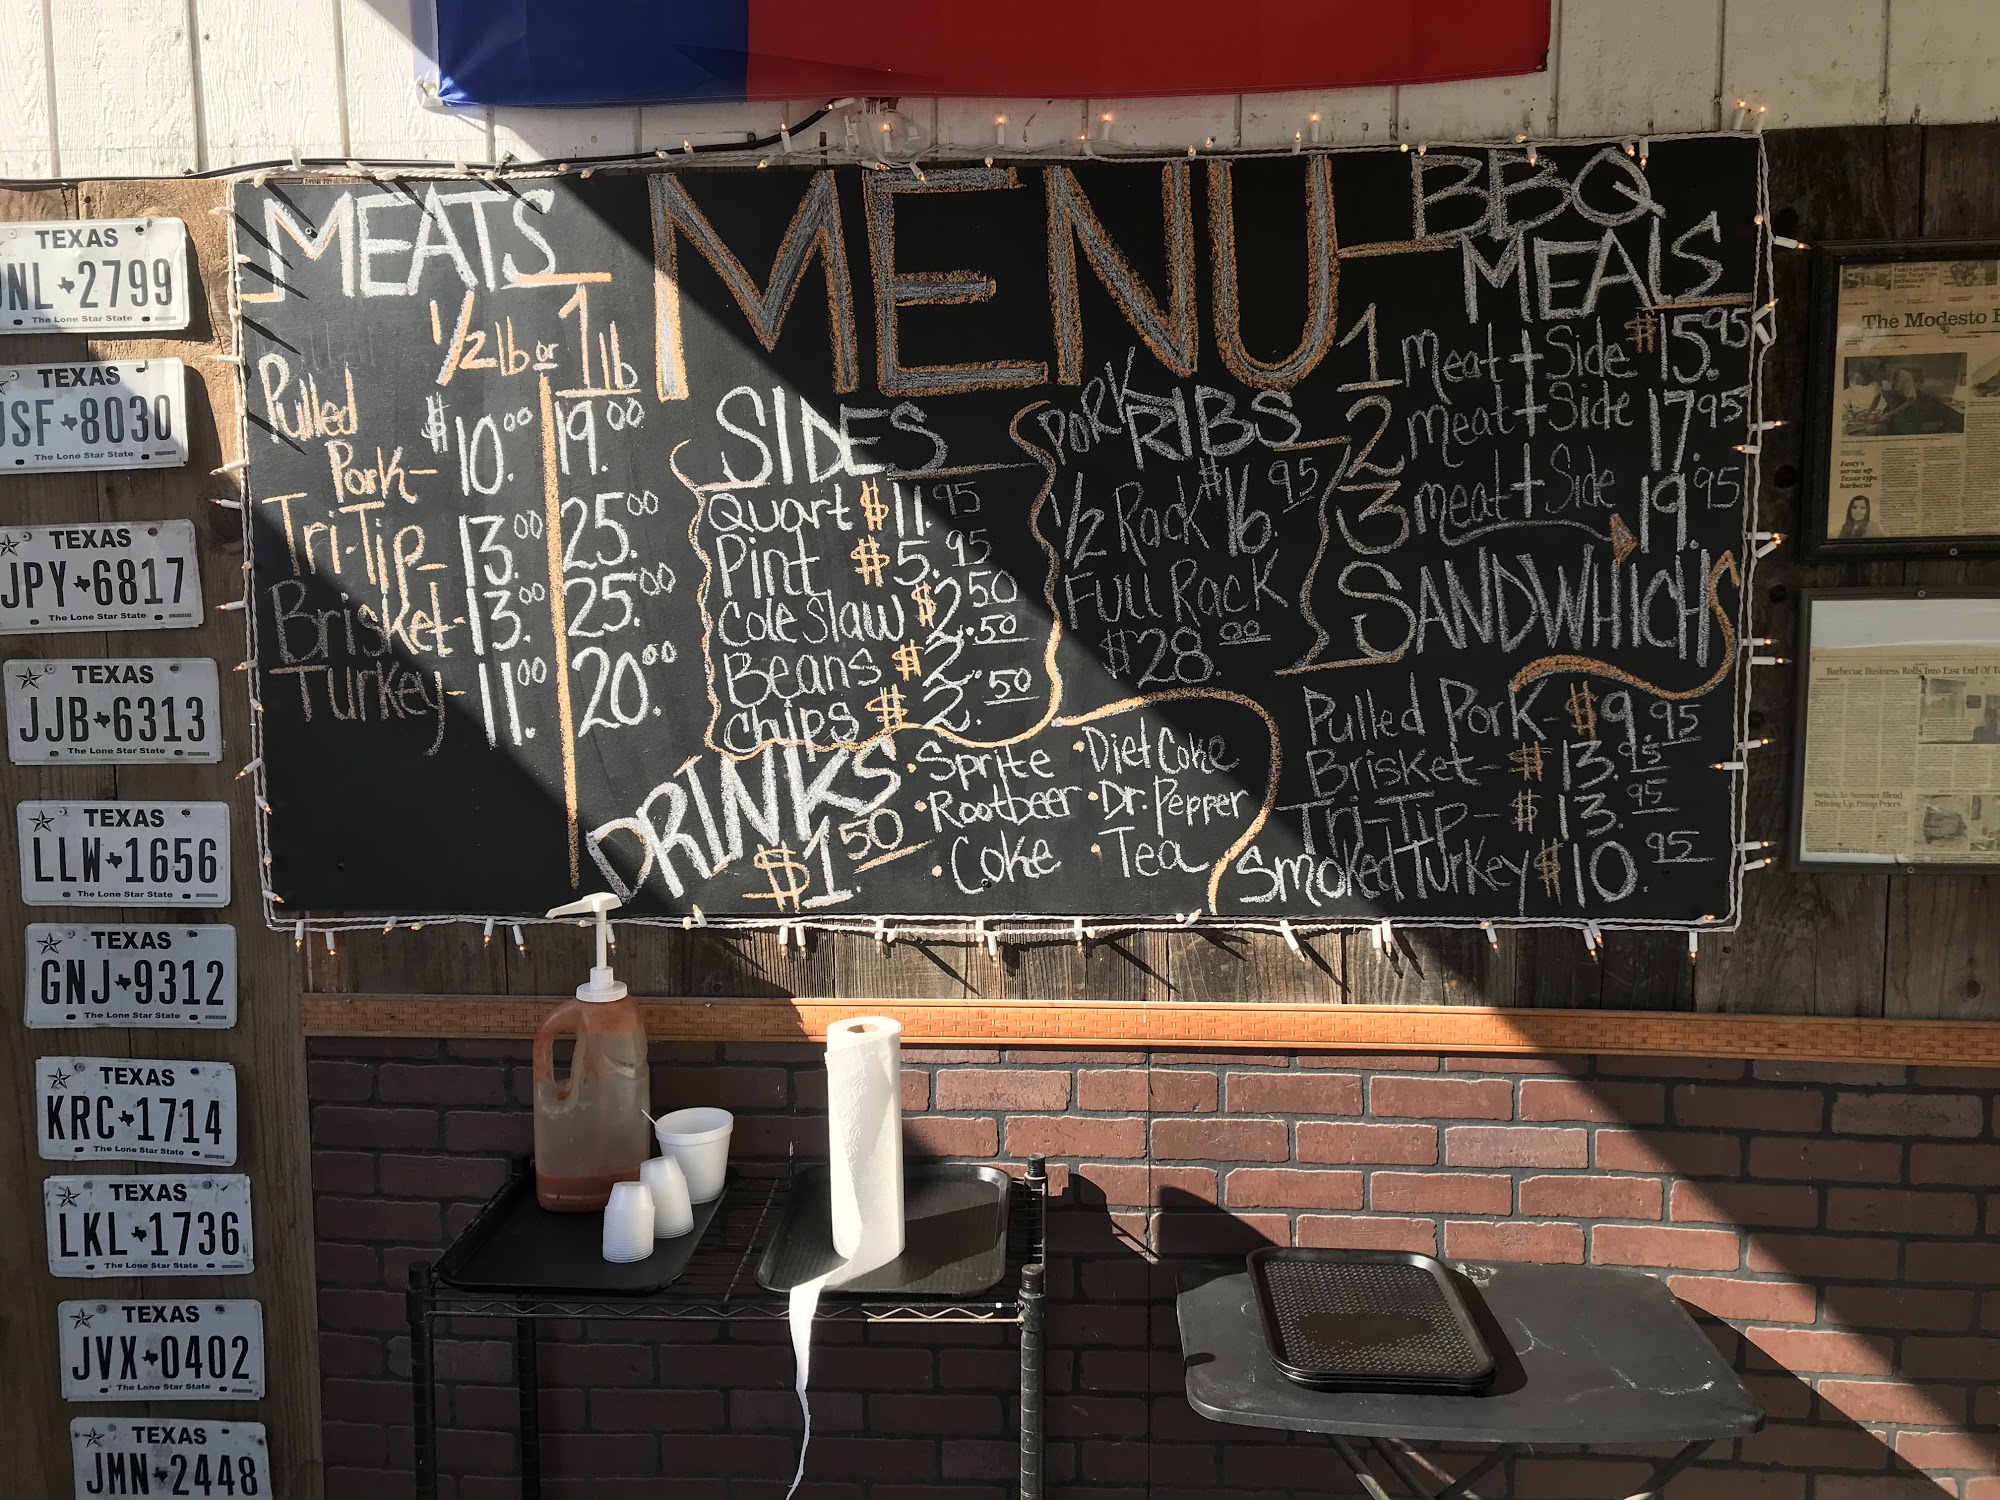 MENU
MEATS
1/2 lb or 1 lb
Pulled
Pork- $10.00 19.00
Tri-Tip- 13.00 25.00
Brisket- 13.00 25.00
Turkey- 11.00 20.00
SIDES
Quart $11.95
Pint $5.95
Cole Slaw $2.50
Beans $2.50
Chips $2.50
PORK RIBS
1/2 Rack $16.95
Full Rack
$28.00
BBQ
MEALS
1 Meat + Side $15.95
2 Meat + Side 17.95
3 Meat + Side 19.95
SANDWHICHS
Pulled Pork- $9.95
Brisket- $13.95
Tri-Tip- $13.95
Smoked Turkey $10.95
DRINKS
$1.50
• Sprite • Diet Coke
• Rootbeer • Dr. Pepper
• Coke • Tea
TEXAS
NL 2799
The Lone Star State
TEXAS
SF 8030
The Lone Star State
TEXAS
JPY 6817
The Lone Star State
TEXAS
JJB 6313
The Lone Star State
TEXAS
LLW 1656
The Lone Star State
TEXAS
GNJ 9312
The Lone Star State
TEXAS
KRC 1714
The Lone Star State
TEXAS
LKL 1736
The Lone Star State
TEXAS
JVX 0402
The Lone Star State
TEXAS
JMN 2448
The Modesto
serves up
Texas-type
barbecue
Barbecue Business Rolls Into East End Of
Switch To Summer Blend
Driving Up Pump Prices